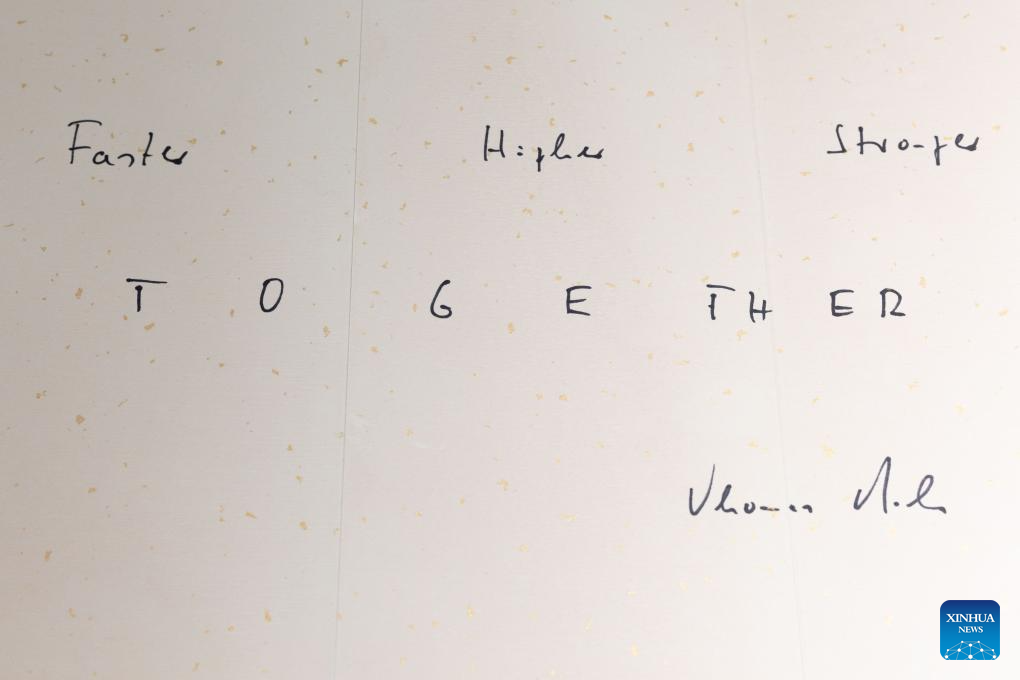 Faster Higher Stronger
T O G E T H E R
Thomas Bach
XINHUA
NEWS